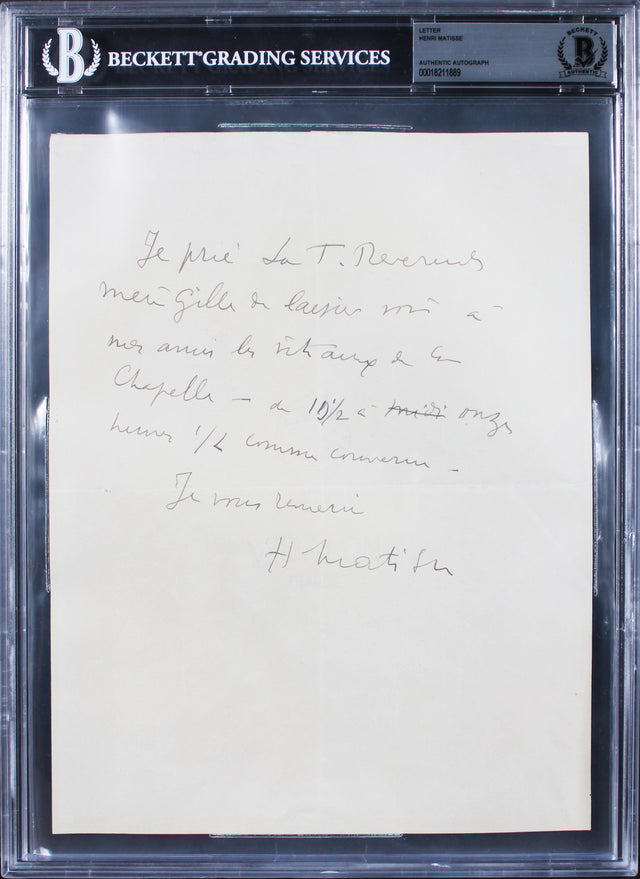 BECKETT® GRADING SERVICES
LETTER
HENRI MATISSE
AUTHENTIC AUTOGRAPH
00018211889
BECKETT
B
AUTHENTIC
B
Je prie La T. Reverende
mère Gille de laisser voir à
mes amis les vitraux de la
Chapelle — de 10 1/2 à midi onze
heures 1/2 comme convenu —
Je vous remercie
H Matisse